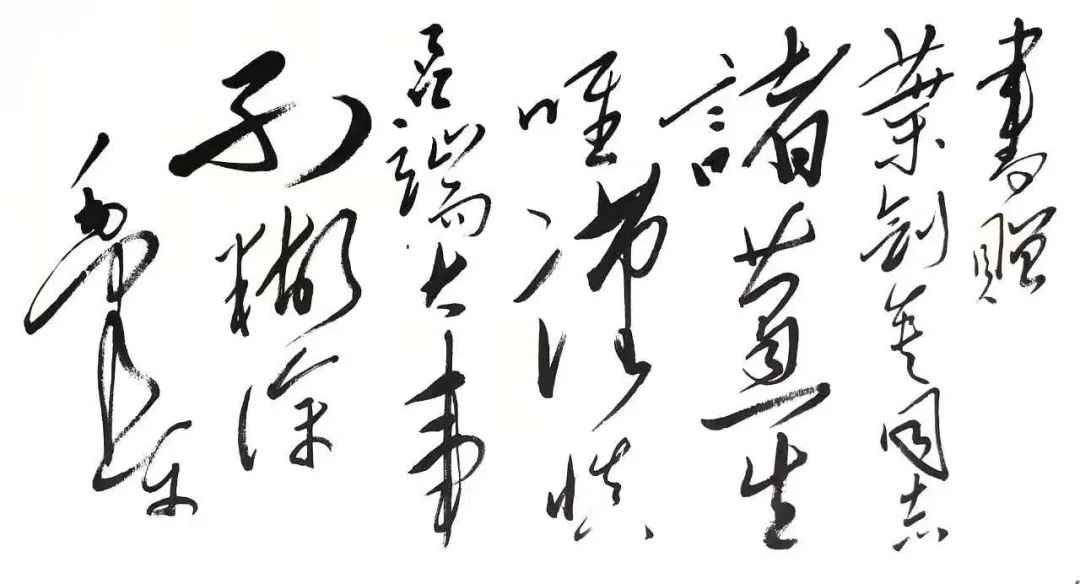 書贈
葉劍英同志
諸葛一生
唯謹慎
呂端大事
不糊塗
毛澤東